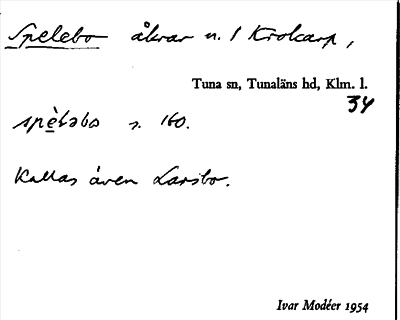 Spelebo åkrar n. 1 Krokarp,
Tuna sn, Tunaläns hd, Klm. l.
34
spèləbo s. 160.
Kallas även Larsbo.
Ivar Modéer 1954